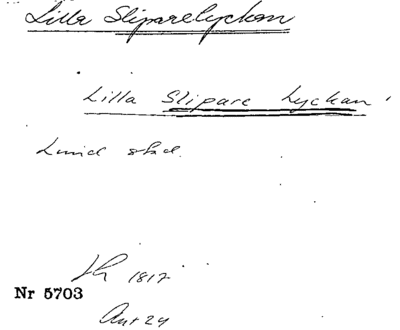 Lilla Sliparelyckan
Lilla Slipare Lyckan
Lund stad.
1817
Nr 5703
Akt 29